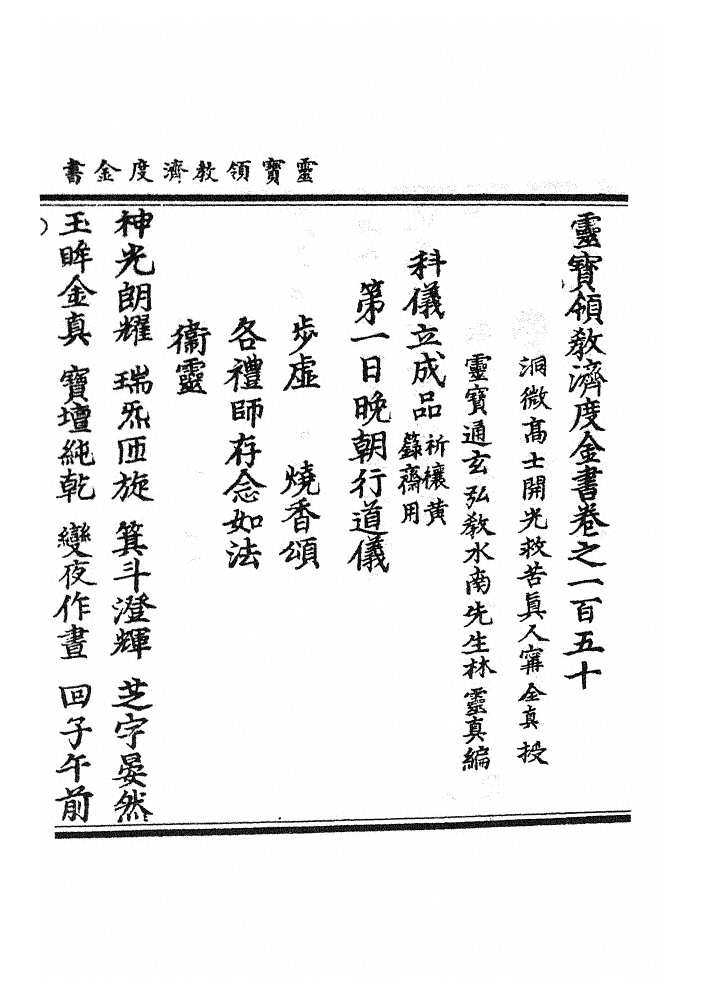 靈寶領教濟度金書
靈寶領教濟度金書卷之一百五十
洞微高士開光救苦眞人甯全真授
靈寶通玄弘教水南先生林靈真編
科儀立成品祈禳黃籙齋用
第一日晚朝行道儀
步虛 燒香頌
各禮師存念如法
衞靈
神光朗耀 瑞炁匝旋 箕斗澄輝 芝字晏然
玉眸金真 寶壇純乾 變夜作晝 回子午前